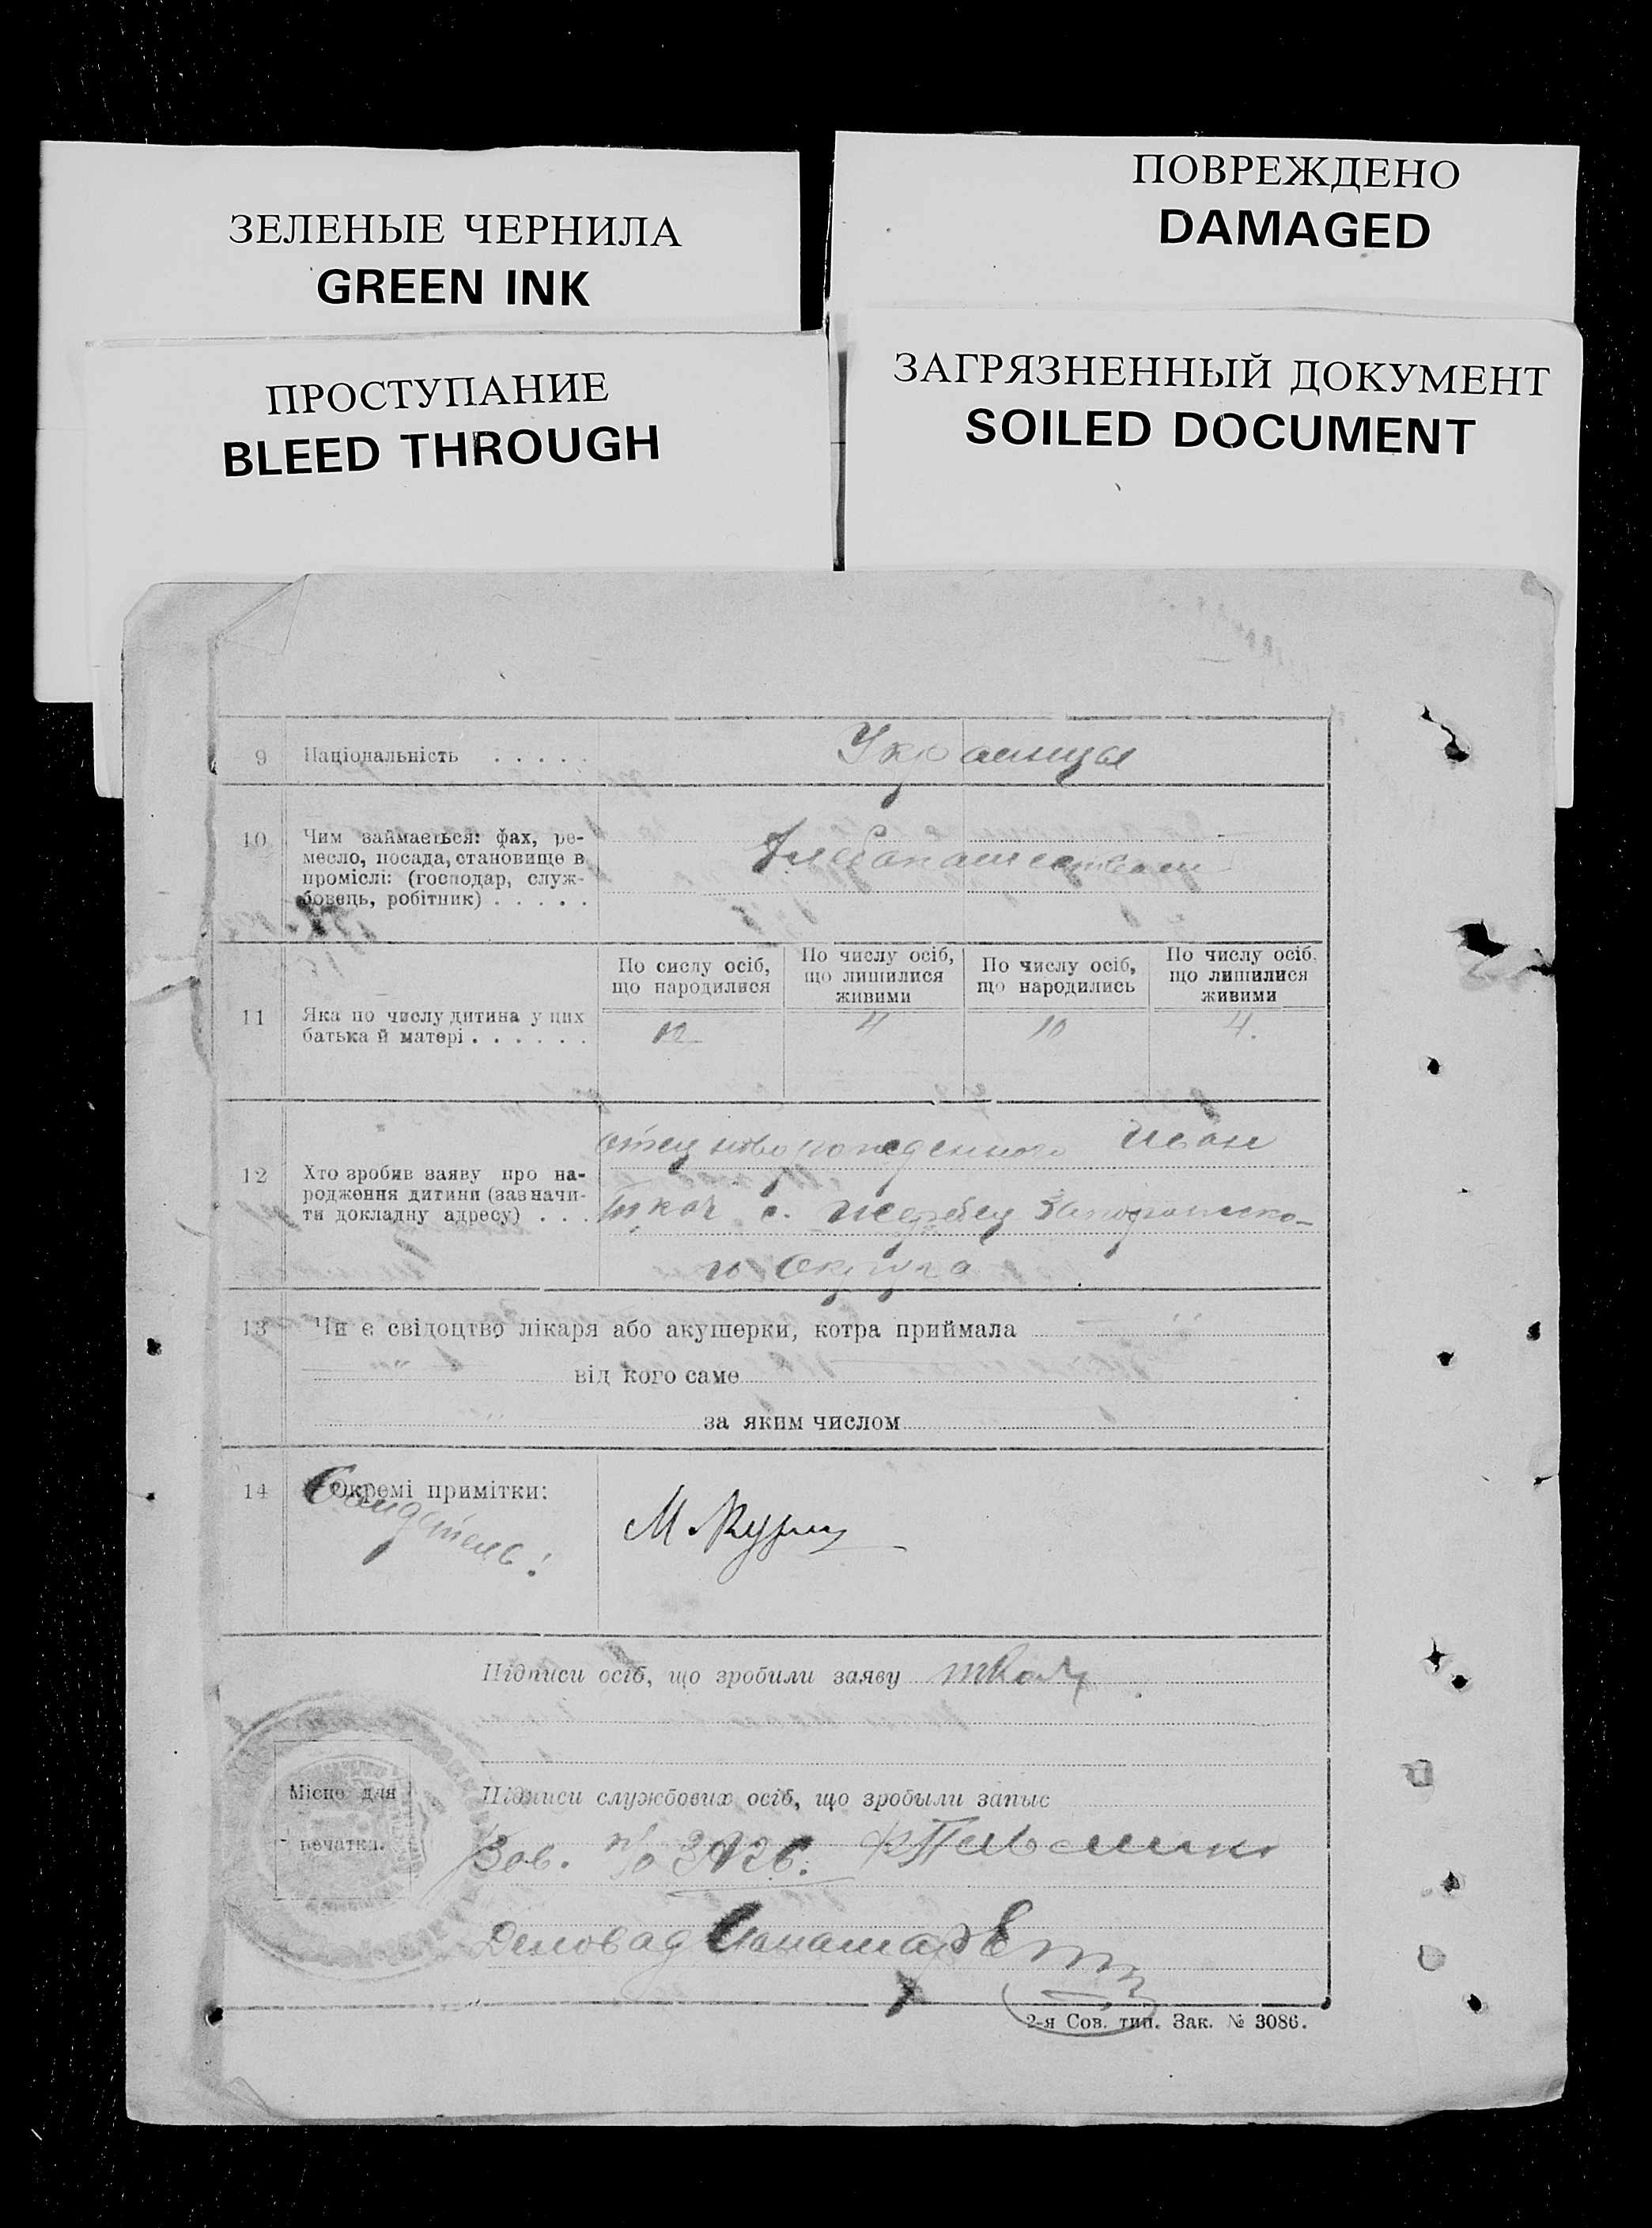 ЗЕЛЕНЫЕ ЧЕРНИЛА
GREEN INK
ПРОСТУПАНИЕ
BLEED THROUGH
ПОВРЕЖДЕНО
DAMAGED
ЗАГРЯЗНЕННЫЙ ДОКУМЕНТ
SOILED DOCUMENT
9 Національність . . . . . Украинцы
10 Чим займається: фах, ре-
месло, посада, становище в
проміслі: (господар, служ-
бовець, робітник) . . . . .
Хлебопашеством
По сислу осіб,
що народилися
По числу осіб,
що лишилися
живими
По числу осіб,
що народились
По числу осіб,
що лишилися
живими
11 Яка по числу дитина у цих
батька й матері . . . . . .
10 4 10 4.
12 Хто зробив заяву про на-
родження дитини (зазначи-
ти докладну адресу) . . .
отец новорожденного Иван
Ткач с. Жеребец Запорожско-
го Округа
13 Чи є свідоцтво лікаря або акушерки, котра приймала
від кого саме
за яким числом
14 Окремі примітки:
Свидетель:
Підписи осіб, що зробили заяву ткач
Місце для
печатки.
Підписи службових осіб, що зробыли запыс
Зав. п/о ЗАГС.
Деловод
2-я Сов. тип. Зак. № 3086.